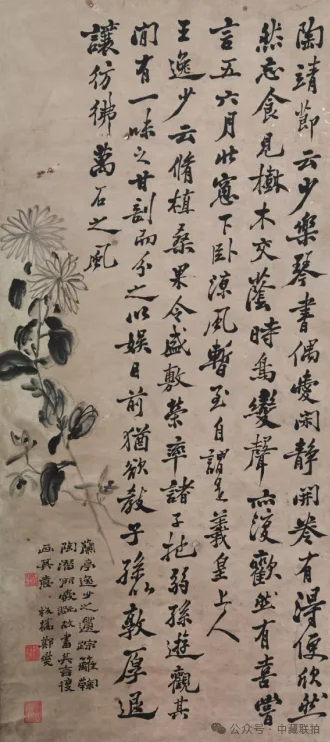 陶靖節云少樂琴書偶愛閑静開卷有得便欣然
忘食見樹木交蔭時鳥變聲亦復歡然有喜嘗
言五六月北窗下卧涼風暫至自謂是羲皇上人
王逸少云脩植桑果今盛敷榮率諸子抱弱孫遊觀其
間有一味之甘割而分之以娱目前猶欲教子孫以敦厚退
讓彷彿萬石之風
蘭亭逸少之遺踪籬鞠
陶潛所欽故書其言復
画其意
板橋鄭燮
公众号·中藏联拍